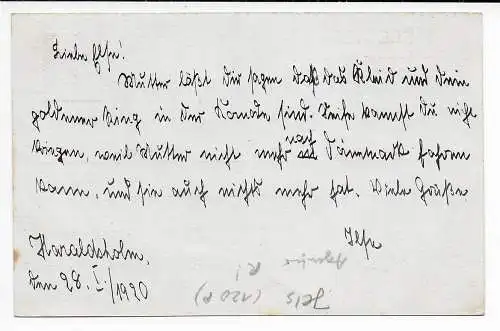 Liebe Else!
Mutter läßt Dir sagen daß das Kleid und dein
goldener Ring in der Komode sind. Seife kannst Du nicht
kriegen, weil Mutter nicht mehr nach Dänmark fahren
kann, und sie auch nichts mehr hat. Viele Grüße
Ilse
Haraldsholm,
den 28. I./1920
Jels (120 )